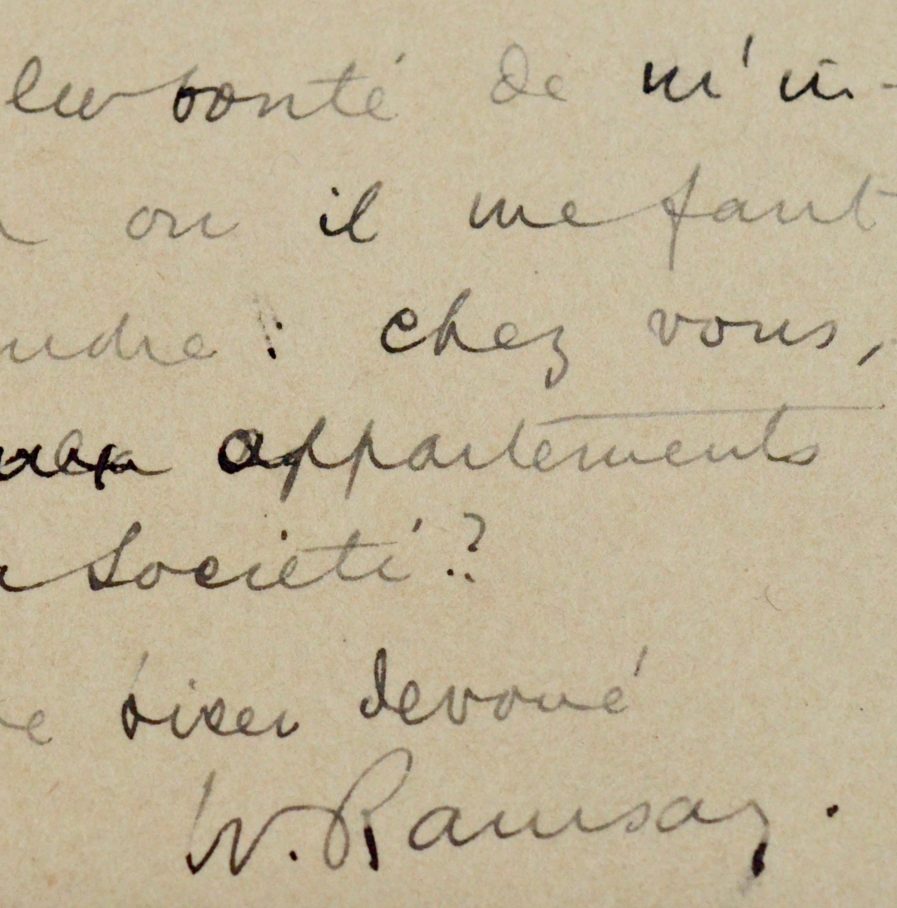 la bonté de m'in-
ou il me faut
ndre : chez vous,
appartements
Societé ?
bien devoué
W. Ramsay.